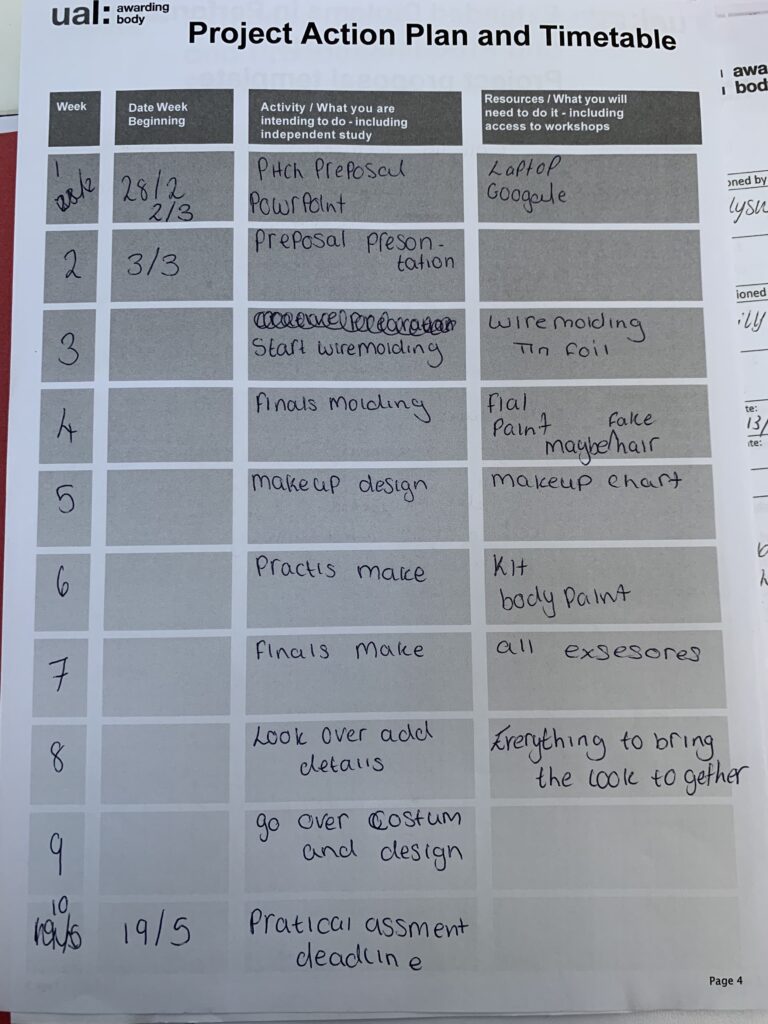 ual: awarding body
Project Action Plan and Timetable
Week
Date Week Beginning
Activity / What you are intending to do - including independent study
Resources / What you will need to do it - including access to workshops
1
28/2
2/3
Pitch Preposal
PowrPoint
Laptop
Googale
2
3/3
Preposal Preson-
tation
3
Start wiremolding
wiremolding
Tin foil
4
Finals molding
fial
Paint fake
maybe hair
5
makeup design
makeup chart
6
Practis make
Kit
body Paint
7
Finals make
all exsesores
8
Look over add
details
Everything to bring
the look to gether
9
go over Costum
and design
10
19/5
Pratical assment
deadline
Page 4
awa
bod
oned by
ioned
te:
13/
te: